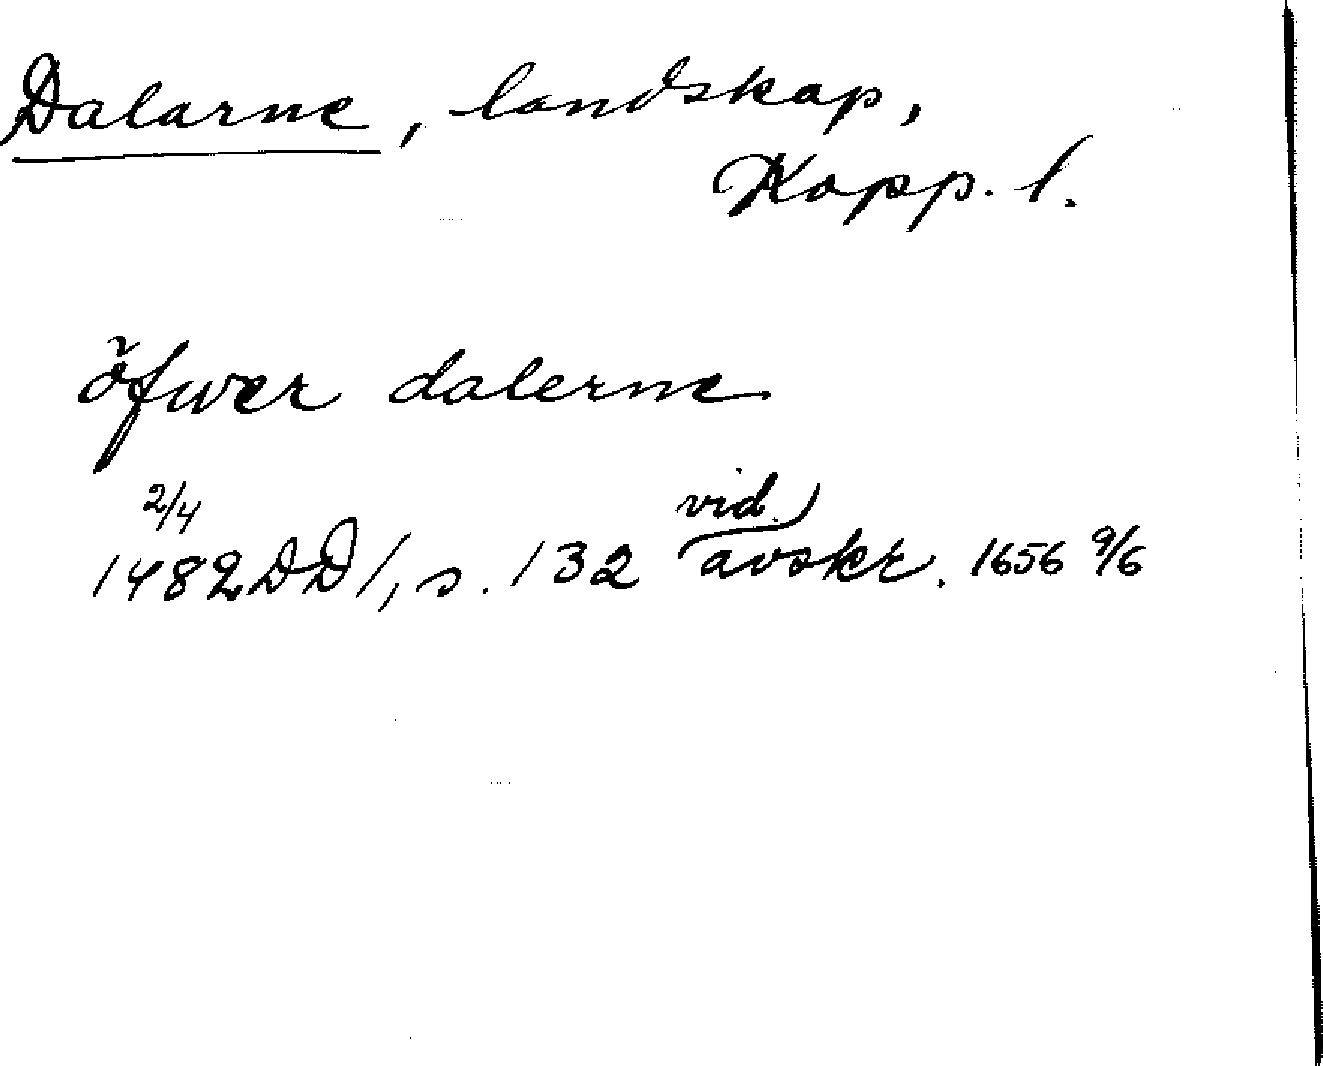 Dalarne, landskap,
Kopp. l.
öfwer dalerne
2/4 vid.
1482 DD 1, s. 132 avskr. 1656 9/6